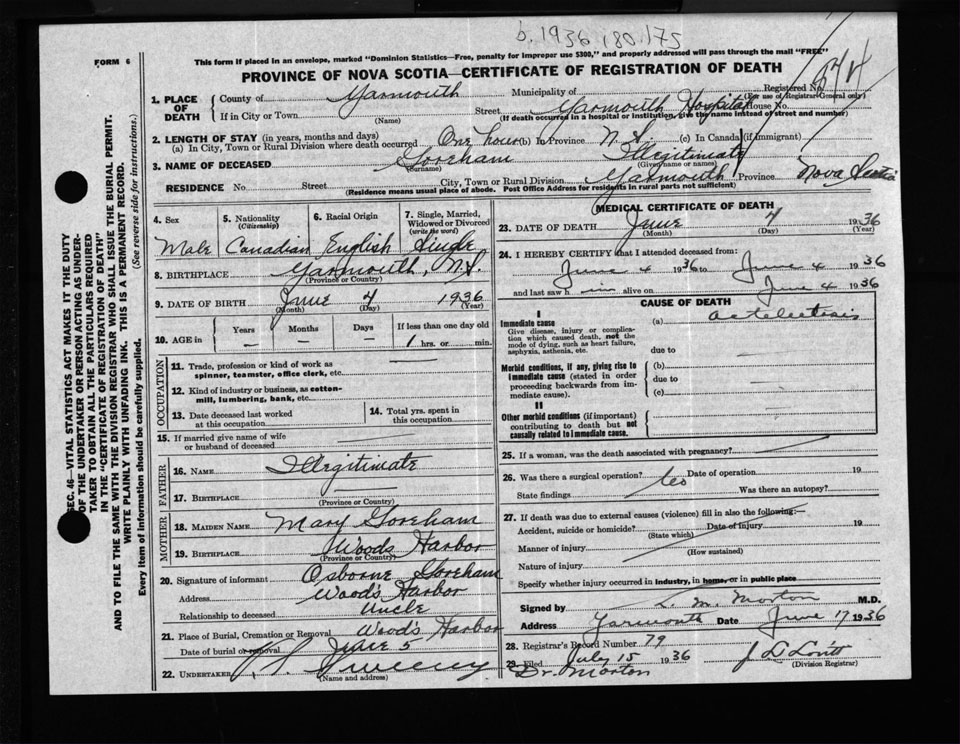 b. 1936 180.175
FORM 6
This form if placed in an envelope, marked "Dominion Statistics—Free, penalty for improper use $300," and properly addressed will pass through the mail "FREE"
PROVINCE OF NOVA SCOTIA—CERTIFICATE OF REGISTRATION OF DEATH
Registered No.
(For use of Registrar General only)
1. PLACE OF DEATH
County of Yarmouth Municipality of
If in City or Town (Name) Street Yarmouth Hospital House No.
(If death occurred in a hospital or institution, give the name instead of street and number)
2. LENGTH OF STAY (in years, months and days)
(a) In City, Town or Rural Division where death occurred One hour (b) In Province N.S. (c) In Canada (if immigrant)
3. NAME OF DECEASED Goreham Illegitimate
(Surname) (Given name or names)
RESIDENCE No. Street City, Town or Rural Division Yarmouth Province Nova Scotia
(Residence means usual place of abode. Post Office Address for residents in rural parts not sufficient)
4. Sex 5. Nationality (Citizenship) 6. Racial Origin 7. Single, Married, Widowed or Divorced (write the word)
Male Canadian English Single
8. BIRTHPLACE Yarmouth, N.S.
(Province or Country)
9. DATE OF BIRTH June 4 1936
(Month) (Day) (Year)
10. AGE in Years Months Days If less than one day old
— — — 1 hrs. or min.
OCCUPATION
11. Trade, profession or kind of work as spinner, teamster, office clerk, etc.
12. Kind of industry or business, as cotton-mill, lumbering, bank, etc.
13. Date deceased last worked at this occupation
14. Total yrs. spent in this occupation
15. If married give name of wife or husband of deceased
FATHER
16. NAME Illegitimate
17. BIRTHPLACE
(Province or Country)
MOTHER
18. MAIDEN NAME Mary Goreham
19. BIRTHPLACE Woods Harbor
(Province or Country)
20. Signature of informant Osborne Goreham
Address Woods Harbor
Relationship to deceased Uncle
21. Place of Burial, Cremation or Removal Wood's Harbor
Date of burial or removal June 5
22. UNDERTAKER Sweeny
(Name and address)
MEDICAL CERTIFICATE OF DEATH
23. DATE OF DEATH June 4 1936
(Month) (Day) (Year)
24. I HEREBY CERTIFY that I attended deceased from:
June 4 1936 to June 4 1936
and last saw h im alive on June 4 1936
CAUSE OF DEATH
I
Immediate cause (a)
Give disease, injury or complication which caused death, not the mode of dying, such as heart failure, asphyxia, asthenia, etc.
due to
Morbid conditions, if any, giving rise to immediate cause (stated in order proceeding backwards from immediate cause).
(b)
due to
(c)
II
Other morbid conditions (if important) contributing to death but not causally related to immediate cause.
25. If a woman, was the death associated with pregnancy?
26. Was there a surgical operation? Date of operation 19
State findings Was there an autopsy?
27. If death was due to external causes (violence) fill in also the following:—
Accident, suicide or homicide? Date of injury 19
(State which)
Manner of injury
(How sustained)
Nature of injury
Specify whether injury occurred in industry, in home, or in public place
Signed by L. M. Morton M.D.
Address Yarmouth Date June 17 1936
28. Registrar's Record Number 79
29. Filed July 15 1936
(Division Registrar)
Dr. Morton
SEC. 46—VITAL STATISTICS ACT MAKES IT THE DUTY
OF THE UNDERTAKER OR PERSON ACTING AS UNDER-
TAKER TO OBTAIN ALL THE PARTICULARS REQUIRED
IN THE "CERTIFICATE OF REGISTRATION OF DEATH"
AND TO FILE THE SAME WITH THE DIVISION REGISTRAR WHO SHALL ISSUE THE BURIAL PERMIT.
WRITE PLAINLY WITH UNFADING INK. THIS IS A PERMANENT RECORD.
(See reverse side for instructions.)
Every item of information should be carefully supplied.